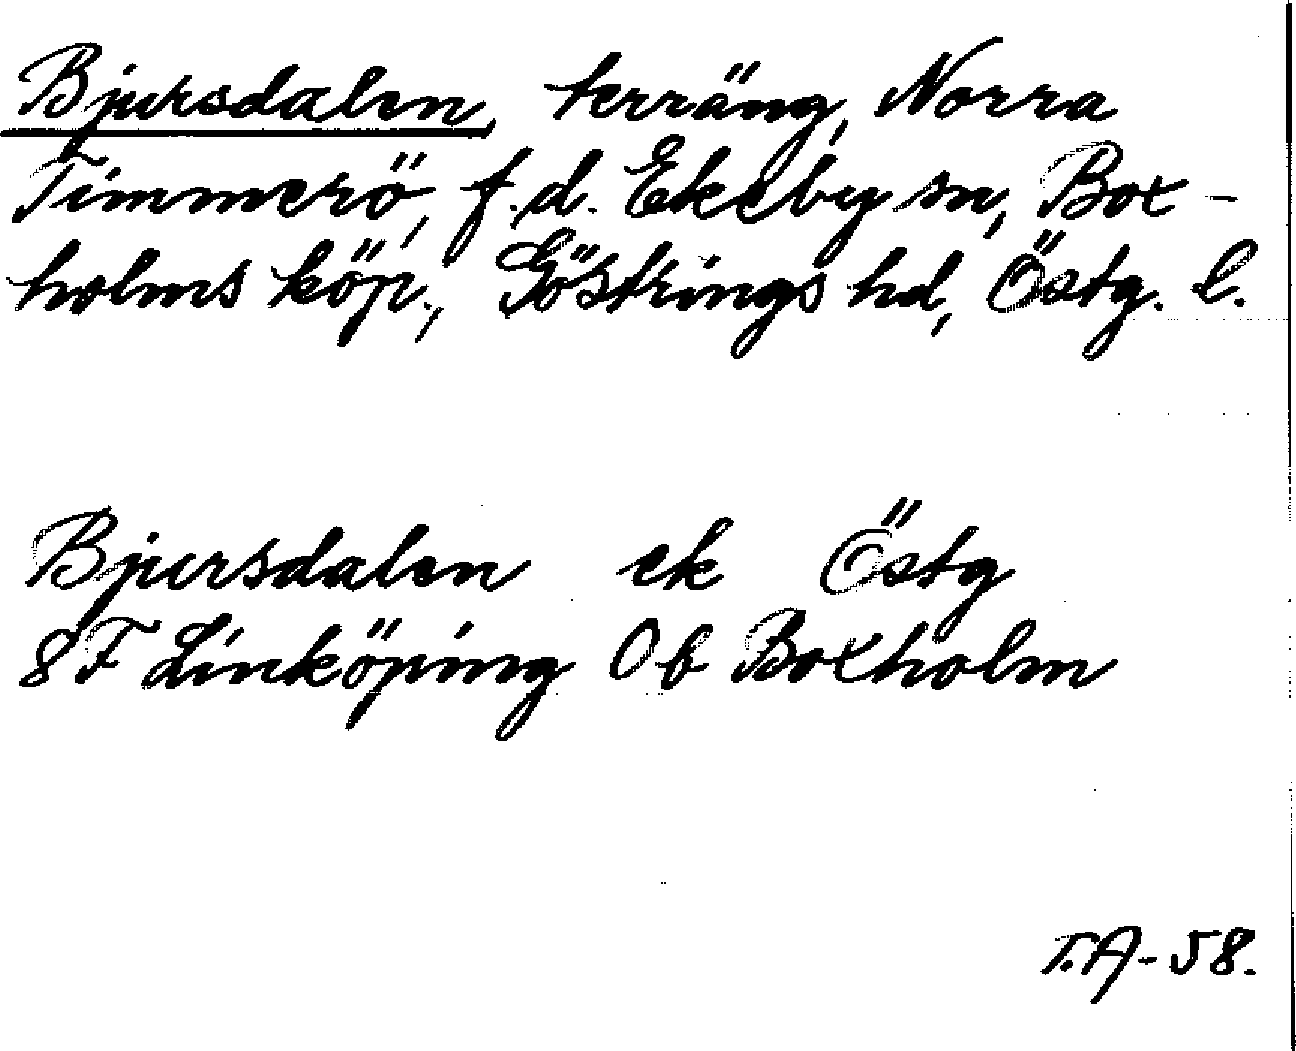 Bjursdalen, terräng, Norra
Timmerö, f.d. Ekeby sn, Box-
holms köp., Göstrings hd, Östg. l.
Bjursdalen ek Östg
8F Linköping 0b Boxholm
T.A-58.